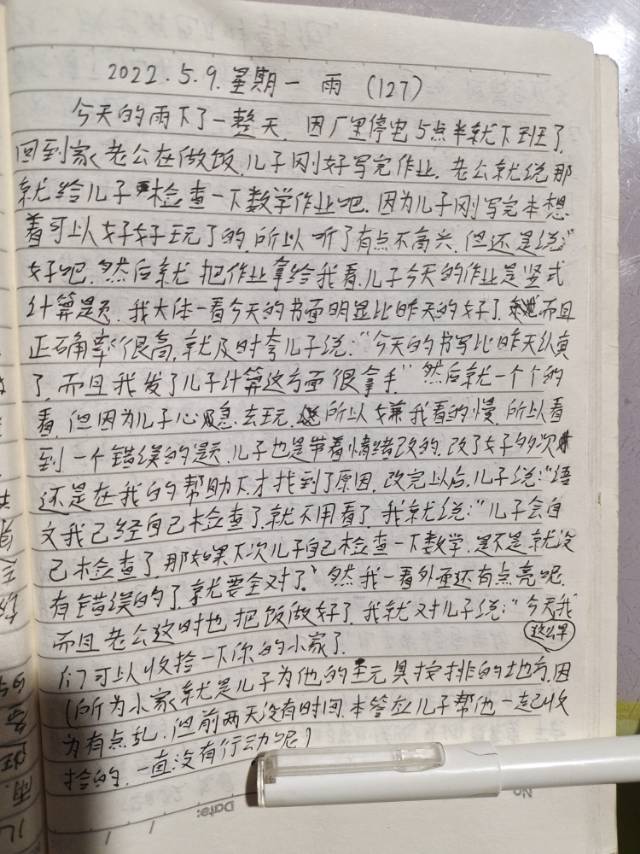 2022.5.9.星期一 雨 (127)
今天的雨下了一整天,因厂里停电5点半就下班了,
回到家,老公在做饭,儿子刚好写完作业,老公就说那
就给儿子检查一下数学作业吧,因为儿子刚写完本想
着可以好好玩了的,所以听了有点不高兴,但还是说"
好吧,然后就把作业拿给我看,儿子今天的作业是竖式
计算题,我大体一看今天的书面明显比昨天的好了,而且
正确率很高,就及时夸儿子说:"今天的书写比昨天认真
了,而且我发了儿子计算这方面很拿手"然后就一个个的
看,但因为儿子心急去玩,所以嫌我看的慢,所以看
到一个错误的题,儿子也是带着情绪改的,改了好多次
还是在我的帮助下才找到了原因,改完以后,儿子说:"语
文我已经自己检查了,就不用看了,我就说:"儿子会自
己检查了那如果下次儿子自己检查一下数学,是不是就没
有错误的了,就要全对了"然我一看外面还有点亮呢,
而且老公这时也把饭做好了,我就对儿子说:"今天我
这么早
们可以收拾一下你的小家了,
(所为小家就是儿子为他的玩具按排的地方,因
为有点乱,但前两天没有时间,本答应儿子帮他一起收
拾的,一直没有行动呢)
No
Date: